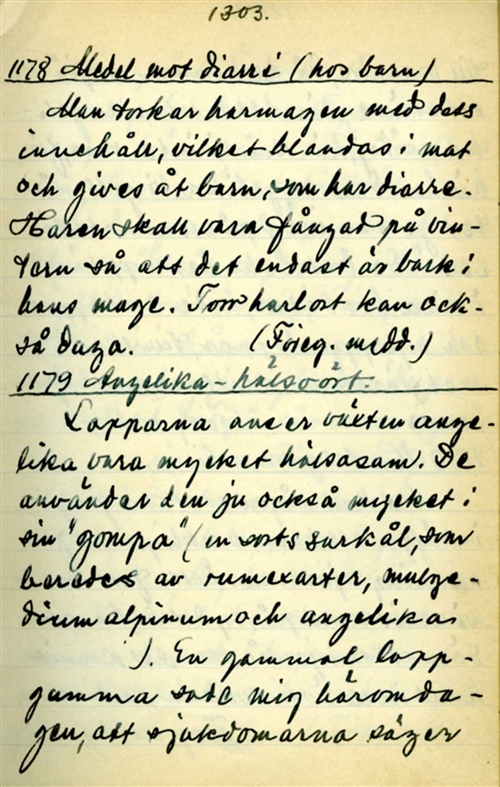 1303.
1178 Medel mot diarré (hos barn)
Man torkar harmagen med dess
innehåll, vilket blandas i mat
och gives åt barn, som har diarre.
Haren skall vara fångad på vin-
tern så att det endast är bark i
hans mage. Torr harlort kan ock-
så duga. (Föreg. medd.)
1179 Angelika - hälsoört.
Lapparna anser växten ange-
lika vara mycket hälsosam. De
använder den ju också mycket i
sin "gompa" (en sorts surkål, som
beredes av rumexarter, mulge-
dium alpinum och angelika
). En gammal lapp-
gumma sade mig häromda-
gen, att sjukdomarna säger